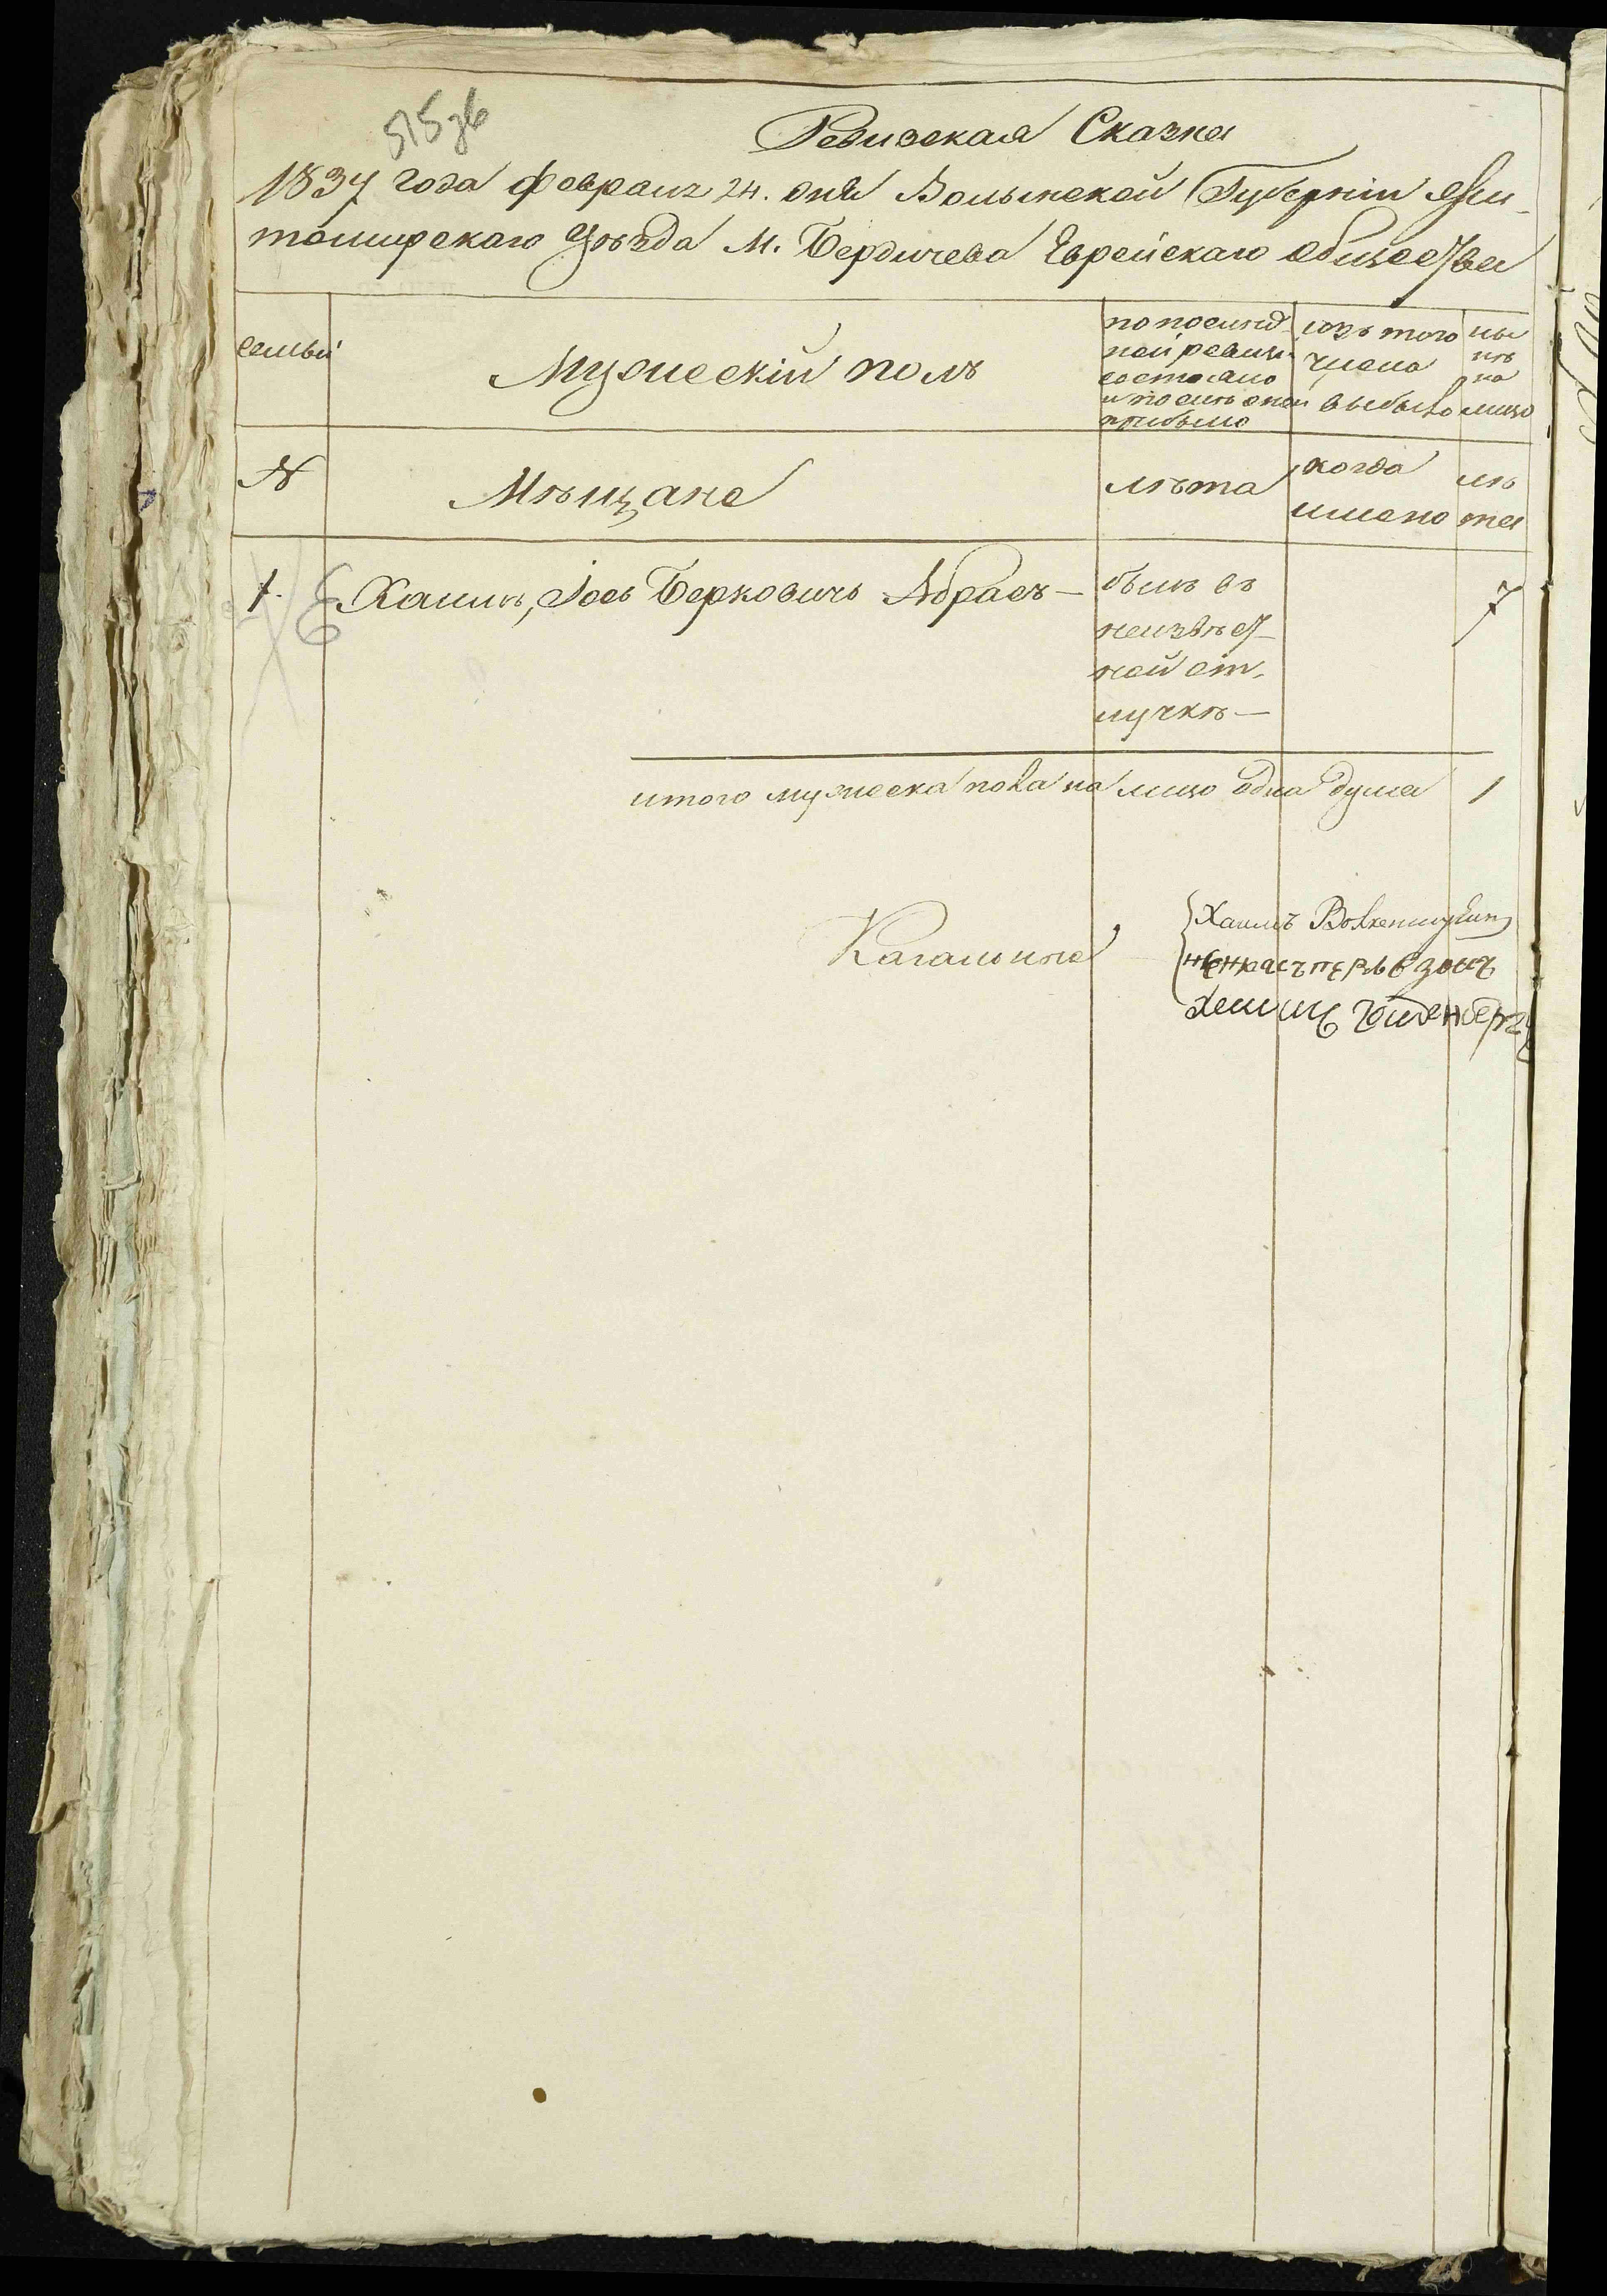 515 зв
Ревизская Сказка
1837 года февраля 24. дня Волынской Губерніи Жи-
томирскаго Уѣзда М. Бердичева Еврейскаго общества
семьи
Мужескій полъ
по послѣд-
ней ревизіи
состояло
и послѣ оной
прибыло
изъ того
числа
выбыло
ны
нѣ
на
лицо
№
Мѣщане
лѣта
когда
имено
лѣ
та
1. Хаимъ, Іось Берковичъ Абрась — былъ въ 7
неизвѣст-
ной от-
лучкѣ —
итого мужеска пола на лицо одна душа 1
Кагальные
Хаимъ